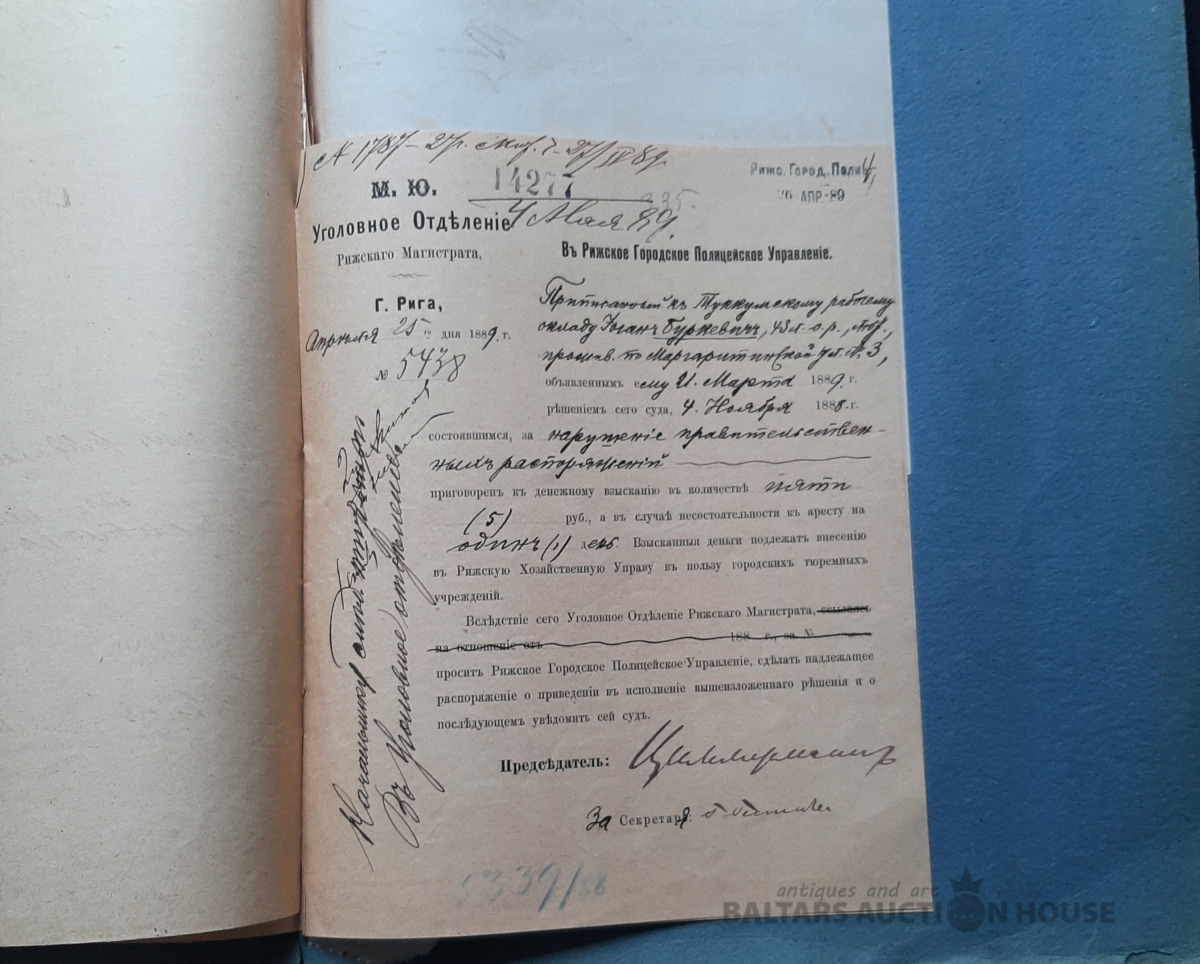 М. Ю.
14277
4 Мая 89.
Рижс. Город. Полиц
26 АПР 89
Уголовное Отдѣленіе
Рижскаго Магистрата,
Въ Рижское Городское Полицейское Управленіе.
Г. Рига,
Апрѣля 25 го дня 1889 г.
№ 5438
Приписанный къ Туккумскому рабочему
окладу Іоганъ Буркевичъ, 43 л. о. р.,
прожив. по Маргаритинской ул. № 3,
объявленнымъ ему 21 Марта 1889 г.
рѣшеніемъ сего суда, 4 Ноября 1888 г.
состоявшимся, за нарушеніе правительствен-
ныхъ распоряженій
приговоренъ къ денежному взысканію въ количествѣ пяти
(5) руб., а въ случаѣ несостоятельности къ аресту на
одинъ (1) день. Взысканныя деньги подлежатъ внесенію
въ Рижскую Хозяйственную Управу въ пользу городскихъ тюремныхъ
учрежденій.
Вслѣдствіе сего Уголовное Отдѣленіе Рижскаго Магистрата, ссылаясь
на отношеніе отъ 188 г., за №
проситъ Рижское Городское Полицейское Управленіе, сдѣлать надлежащее
распоряженіе о приведеніи въ исполненіе вышеизложеннаго рѣшенія и о
послѣдующемъ увѣдомить сей судъ.
Предсѣдатель:
За Секретаря:
Въ Уголовное отдѣленіе
antiques and art
BALTARS AUCTION HOUSE